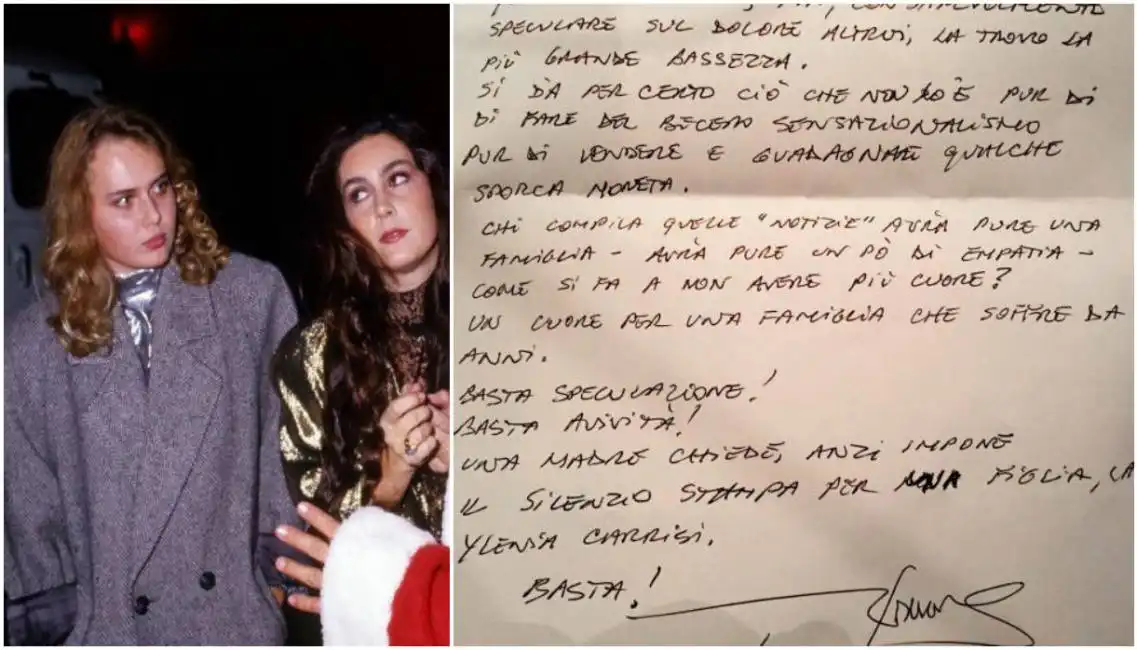 CONSAPEVOLMENTE
SPECULARE SUL DOLORE ALTRUI, LA TROVO LA
PIÙ GRANDE BASSEZZA.
SI DÀ PER CERTO CIÒ CHE NON LO È PUR DI
DI FARE DEL BECERO SENSAZIONALISMO
PUR DI VENDERE E GUADAGNARE QUALCHE
SPORCA MONETA.
CHI COMPILA QUELLE "NOTIZIE" AVRÀ PURE UNA
FAMIGLIA - AVRÀ PURE UN PÒ DI EMPATIA -
COME SI FA A NON AVERE PIÙ CUORE?
UN CUORE PER UNA FAMIGLIA CHE SOFFRE DA
ANNI.
BASTA SPECULAZIONE!
BASTA AVIVITÀ!
UNA MADRE CHIEDE, ANZI IMPONE
IL SILENZIO STAMPA PER SUA FIGLIA, LA
YLENIA CARRISI.
BASTA!